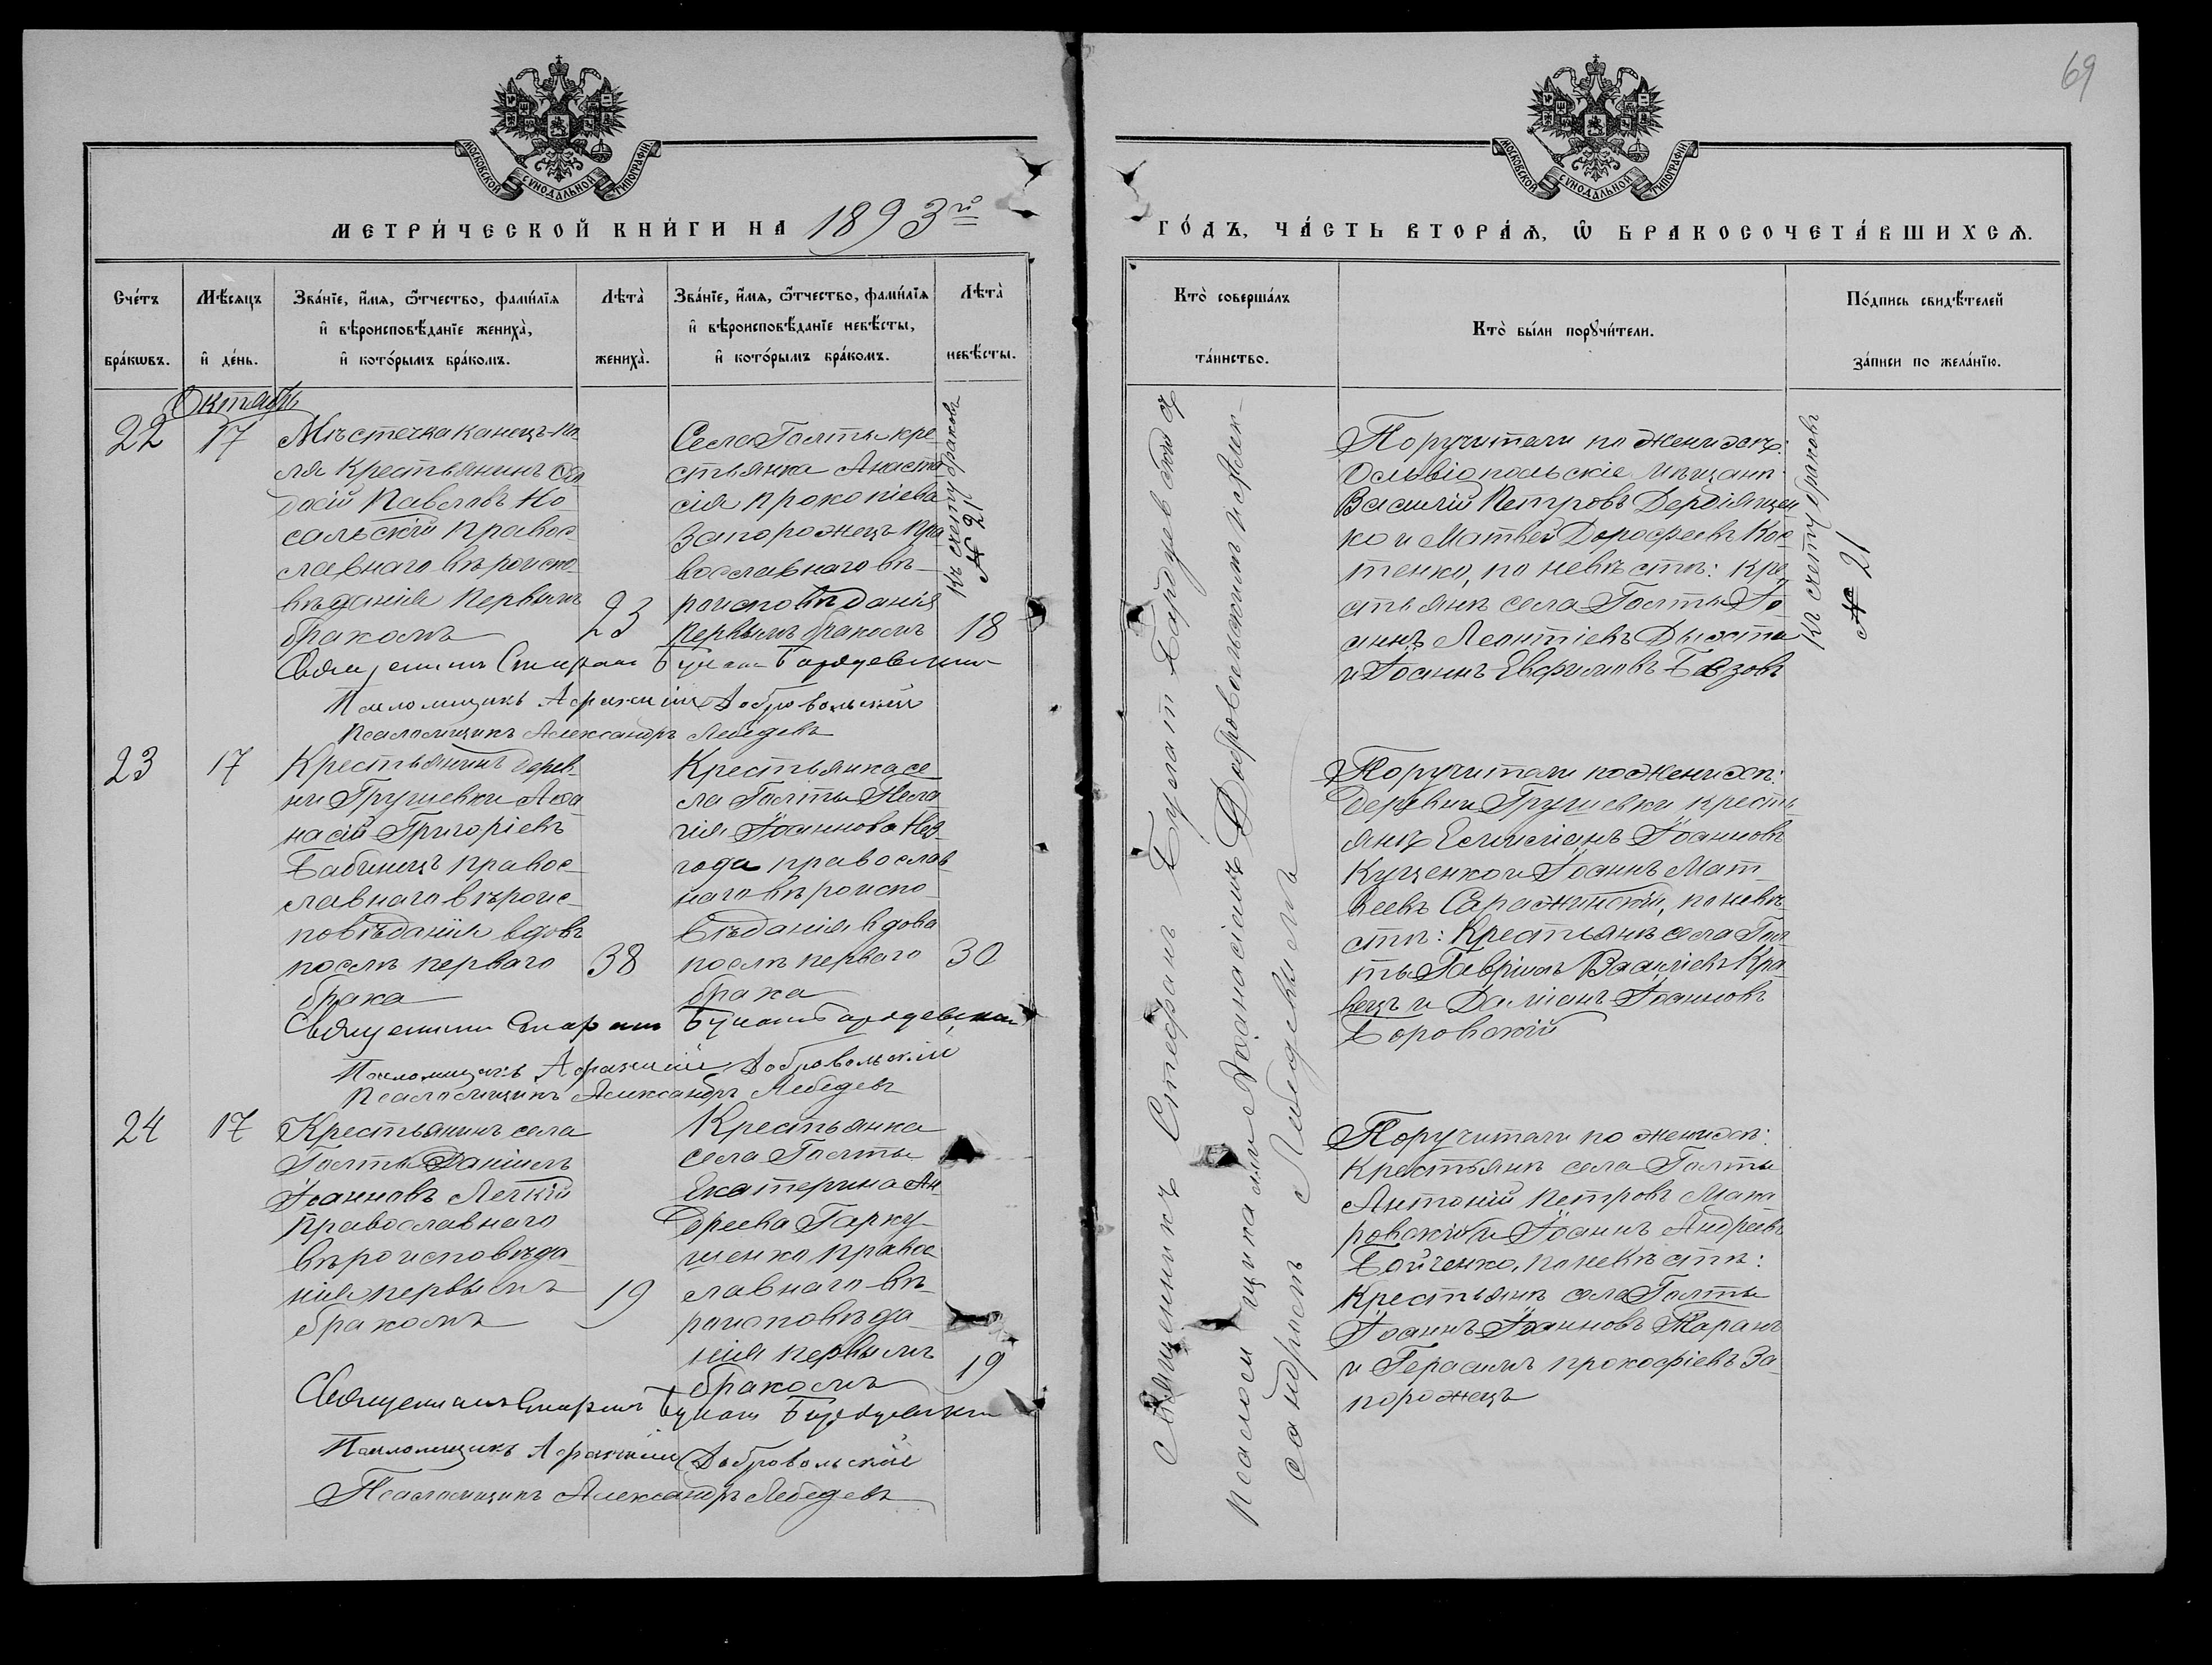 69
МОСКОВСКОЙ СѴНОДАЛЬНОЙ ТИПОГРАФІИ
МЕТРИ́ЧЕСКОЙ КНИ́ГИ НА 1893 й
Сче́тъ бра́кѡвъ.
Мѣ́сяцъ и҆ де́нь.
Зва́нїе, и҆́мѧ, ѻ҆́тчество, фами́лїѧ и҆ вѣроисповѣ́данїе жениха̀, и҆ кото́рымъ бра́комъ.
Лѣта̀ жениха̀.
Зва́нїе, и҆́мѧ, ѻ҆́тчество, фами́лїѧ и҆ вѣроисповѣ́данїе невѣ́сты, и҆ кото́рымъ бра́комъ.
Лѣта̀ невѣ́сты.
Октябрь
22
17
Мѣстечка Конецъ-по-
ля Крестьянинъ
Павловъ Но-
сальскій Правос-
лавнаго вѣроиспо-
вѣданія Первымъ
бракомъ
23
Села Голты кре-
стьянка Анаста-
сія Прокопіева
Запорожецъ Пра-
вославнаго вѣ-
роисповѣданія
первымъ бракомъ
18
Къ счету браковъ
№ 21
Священникъ Стефанъ
Псаломщикъ Афанасій Добровольскій
Псаломщикъ Александръ Лебедевъ
23
17
Крестьянинъ дерев-
ни Грушевки Аѳа-
насій Григоріевъ
Бабинецъ правос-
лавнаго вѣроис-
повѣданія вдовъ
послѣ перваго
брака
38
Крестьянка се-
ла Голты Пела-
гія Іоаннова Нев-
года православ-
наго вѣроиспо-
вѣданія вдова
послѣ перваго
брака
30
Священникъ Стефанъ
Псаломщикъ Афанасій Добровольскій
Псаломщикъ Александръ Лебедевъ
24
17
Крестьянинъ села
Голты Даніилъ
Іоанновъ Легкій
Православнаго
вѣроисповѣда-
нія первымъ
бракомъ
19
Крестьянка
села Голты
Екатерина Ан-
дреева Гарку-
шенко правос-
лавнаго вѣ-
роисповѣда-
нія первымъ
бракомъ
19
Священникъ Стефанъ
Псаломщикъ Афанасій Добровольскій
Псаломщикъ Александръ Лебедевъ
МОСКОВСКОЙ СѴНОДАЛЬНОЙ ТИПОГРАФІИ
ГО́ДЪ, ЧА́СТЬ ВТОРА́Ѧ, Ѡ҆ БРАКОСОЧЕТА́ВШИХСѦ.
Кто̀ соверша́лъ та́инство.
Кто̀ бы́ли порꙋчи́тели.
По́дпись свидѣ́телей за́писи по жела́нїю.
Священникъ Стефанъ
псаломщиками Аѳанасіемъ Добровольскимъ и Алек-
сандромъ Лебедевымъ
Поручители по женихѣ:
Ольвіопольскіе мѣщане
Василій Петровъ
ко и Матвей Дорофеевъ Кос-
тенко, по невѣстѣ: кре-
стьяне села Голты Іо-
аннъ Леонтіевъ
и Іоаннъ Евфимовъ Бызовъ
Къ счету браковъ
№ 21
Поручители по женихѣ:
деревни Грушевки кресть-
яне Емиліанъ Іоанновъ
Куценко и Іоаннъ Мат-
веевъ Саражинскій, по невѣ-
стѣ: Крестьяне села Гол-
ты Гавріилъ Василіевъ Кра-
вецъ и Даміанъ Іоанновъ
Боровскій
Поручители по женихѣ:
Крестьяне села Голты
Антоній Петровъ Мака-
ровскій и Іоаннъ Андреевъ
Бойченко, по невѣстѣ:
Крестьяне села Голты
Іоаннъ Іоанновъ Таранъ
и Герасимъ Прокофіевъ За-
порожецъ